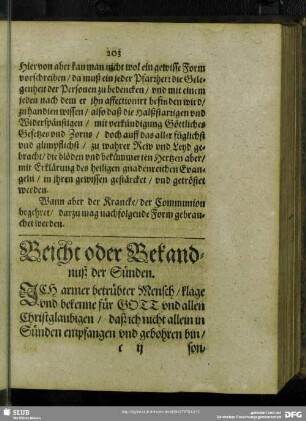 203
Hiervon aber kan man nicht wol ein gewisse Form
vorschreiben / da muß ein jeder Pfarrherr die Gele-
genheit der Personen zu bedencken / vnd mit einem
jeden nach dem er ihn affectionirt befinden wird /
zuhandlen wissen / also daß die Halßstarrigen vnd
Widerspänstigen / mit verkündigung Göttliches
Gesetzes vnd Zorns / doch auff das aller füglichst
vnd glimpflichst / zu wahrer Rew vnd Leyd ge-
bracht / die blöden vnd bekümmerten Hertzen aber /
mit Erklärung des heiligen gnadenreichen Evan-
gelii / in ihren gewissen gestärcket / vnd getröstet
werden.
Wann aber der Krancke / der Communion
begehret / darzu mag nachfolgende Form gebrau-
chet werden.
Beicht oder Bekand-
nuß der Sünden.
ICH armer betrübter Mensch / klage
vnd bekenne für GOTT vnd allen
Christglaubigen / daß ich nicht allein in
Sünden empfangen vnd gebohren bin /
c ij
son-
SLUB
Wir führen Wissen.
DFG